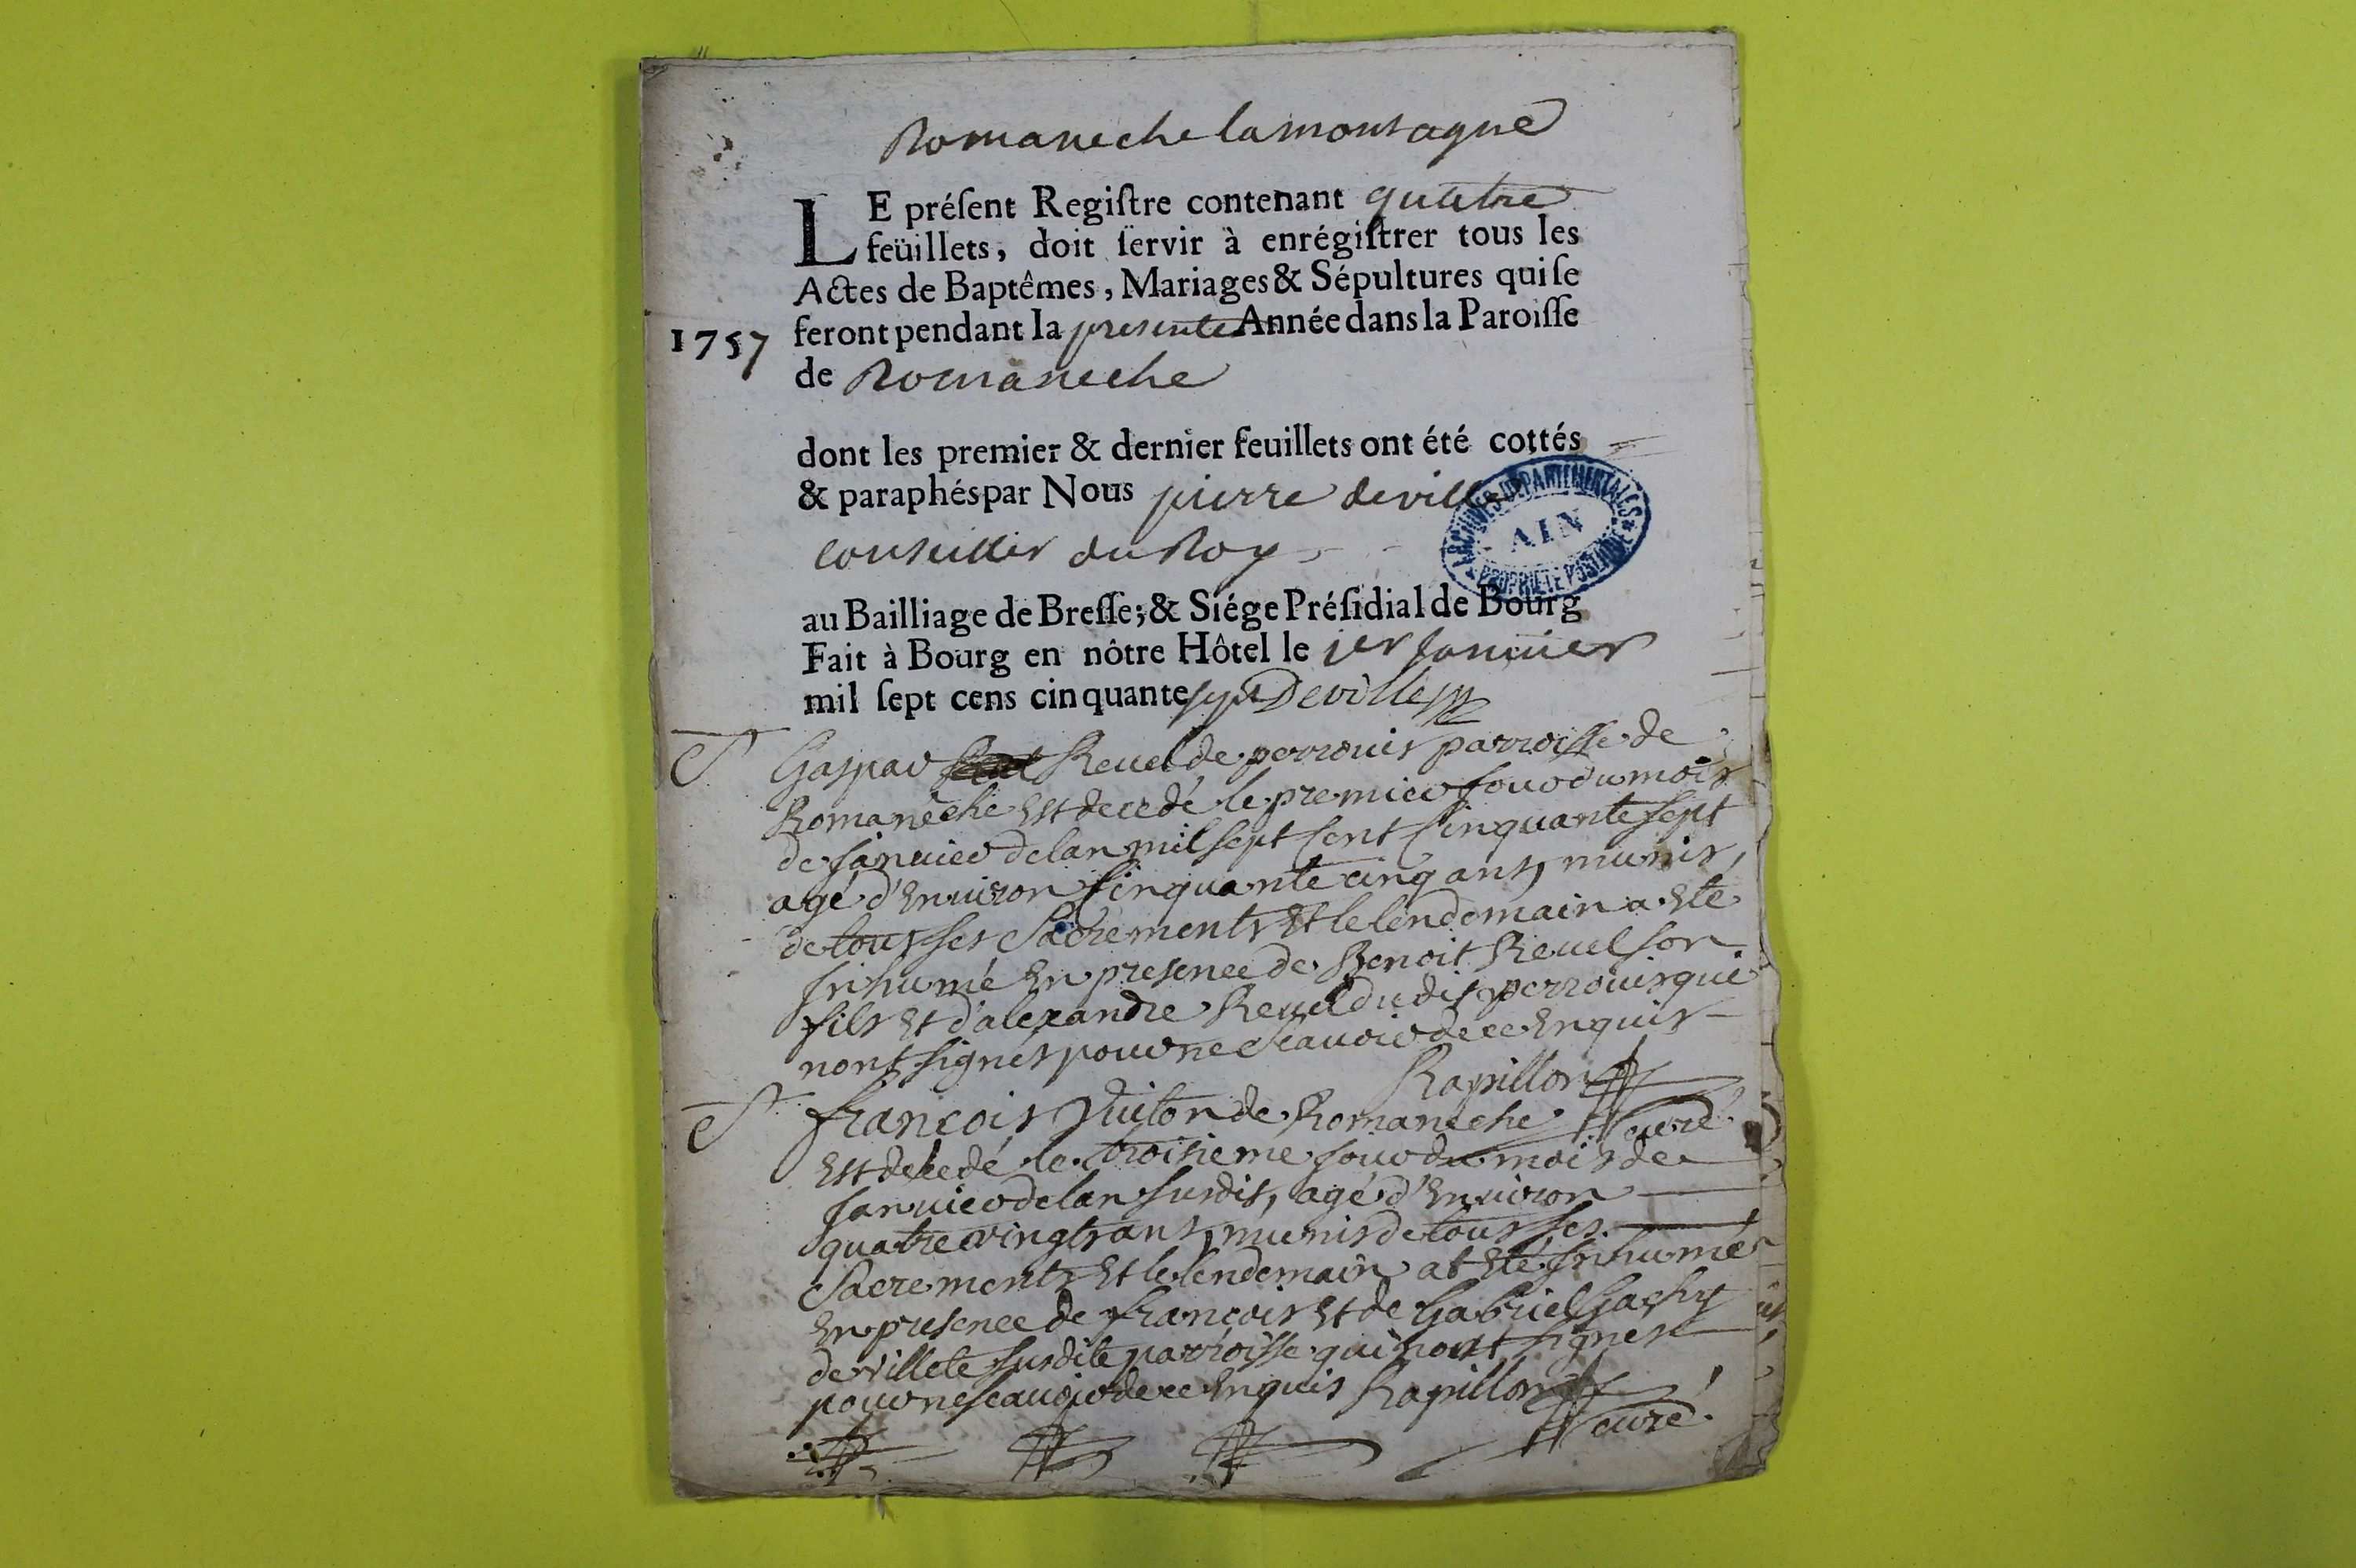 Romaneche lamontagne
LE préſent Regiſtre contenant quatre
feüillets, doit ſervir à enrégiſtrer tous les
Actes de Baptêmes, Mariages & Sépultures qui ſe
1757 feront pendant la presente Année dans la Paroiſſe
de Romaneche
dont les premier & dernier feuillets ont été cottés
& paraphés par Nous pierre deville
conseiller du Roy
ARCHIVES DÉPARTEMENTALES
AIN
PROPRIÉTÉ POSTALE
au Bailliage de Breſſe; & Siége Préſidial de Bourg
Fait à Bourg en nôtre Hôtel le 1er Janvier
mil ſept cens cinquante sept Deville
S. Gaspar Revel de perrouis parroisse de
Romanêche est decedé le premier jour du mois
de janvier de lan mil sept cent cinquante sept
agé d'environ cinquante cinq ans, munis,
de tous ses Sacrements et le lendemain a este
inhumé en presence de Benoit Revel son
fils et d'alexandre Revel du dit perrouis qui
nont signés pour ne scavoir de ce enquis
Rapillon
curé
S. françois Vuiton de Romaneche
est decedé le troisieme jour du mois de
janvier de lan susdit, agé d'environ
quatre vingts ans, munis de tous ses
Sacrements et le lendemain at esté inhumé
en presence de françois et de Gabriel Gachy
de villete susdite parroisse qui nont signes
pour ne scavoir de ce enquis Rapillon
curé.